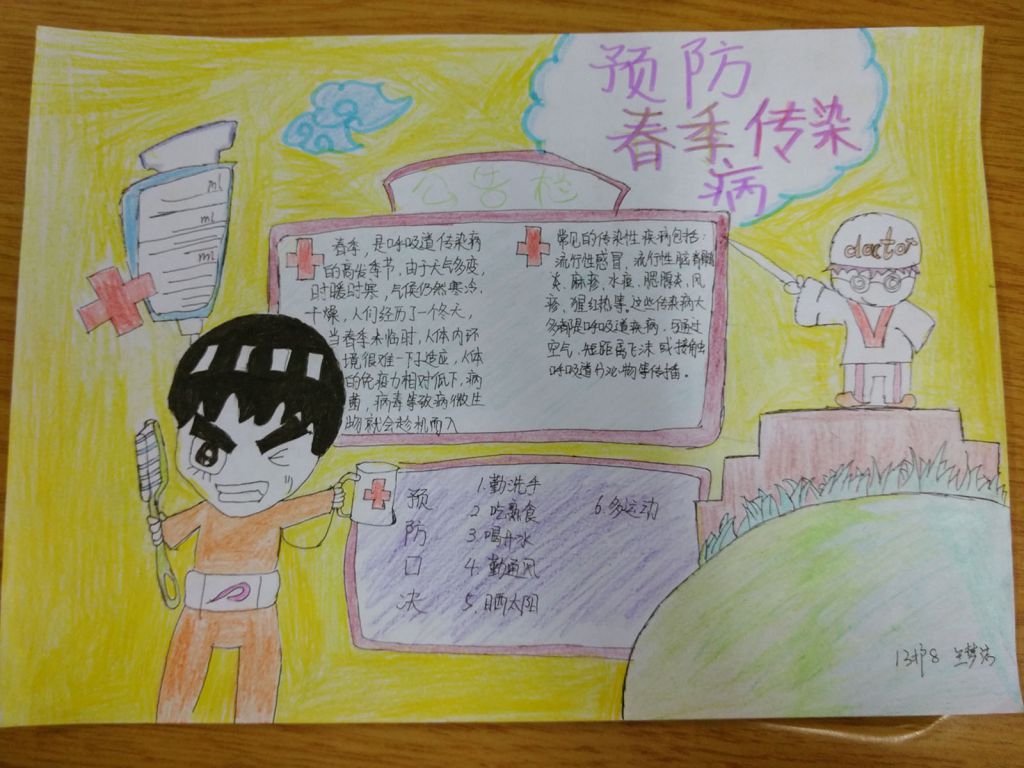 预防
春季传染
病
公告栏
ml
ml
ml
doctor
春季,是呼吸道传染病
的高发季节,由于天气多变,
时暖时寒,气候仍然寒冷、
干燥,人们经历了一个冬天,
当春季来临时,人体内环
境很难一下子适应,人体
的免疫力相对低下,病
菌,病毒等致病微生
物就会趁机而入
常见的传染性疾病包括:
流行性感冒、流行性脑脊髓膜
炎、麻疹、水痘、腮腺炎、风
疹、猩红热等。这些传染病大
多都是呼吸道疾病,可通过
空气、短距离飞沫或接触
呼吸道分泌物等传播。
预防口决
1.勤洗手
2 吃熟食
3.喝开水
4.勤通风
5.晒太阳
6.多运动
13护8